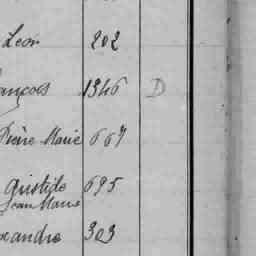 Léon 202
ançois 1346 D
Pierre Marie 667
Aristide 695
Jean Marie
exandre 303